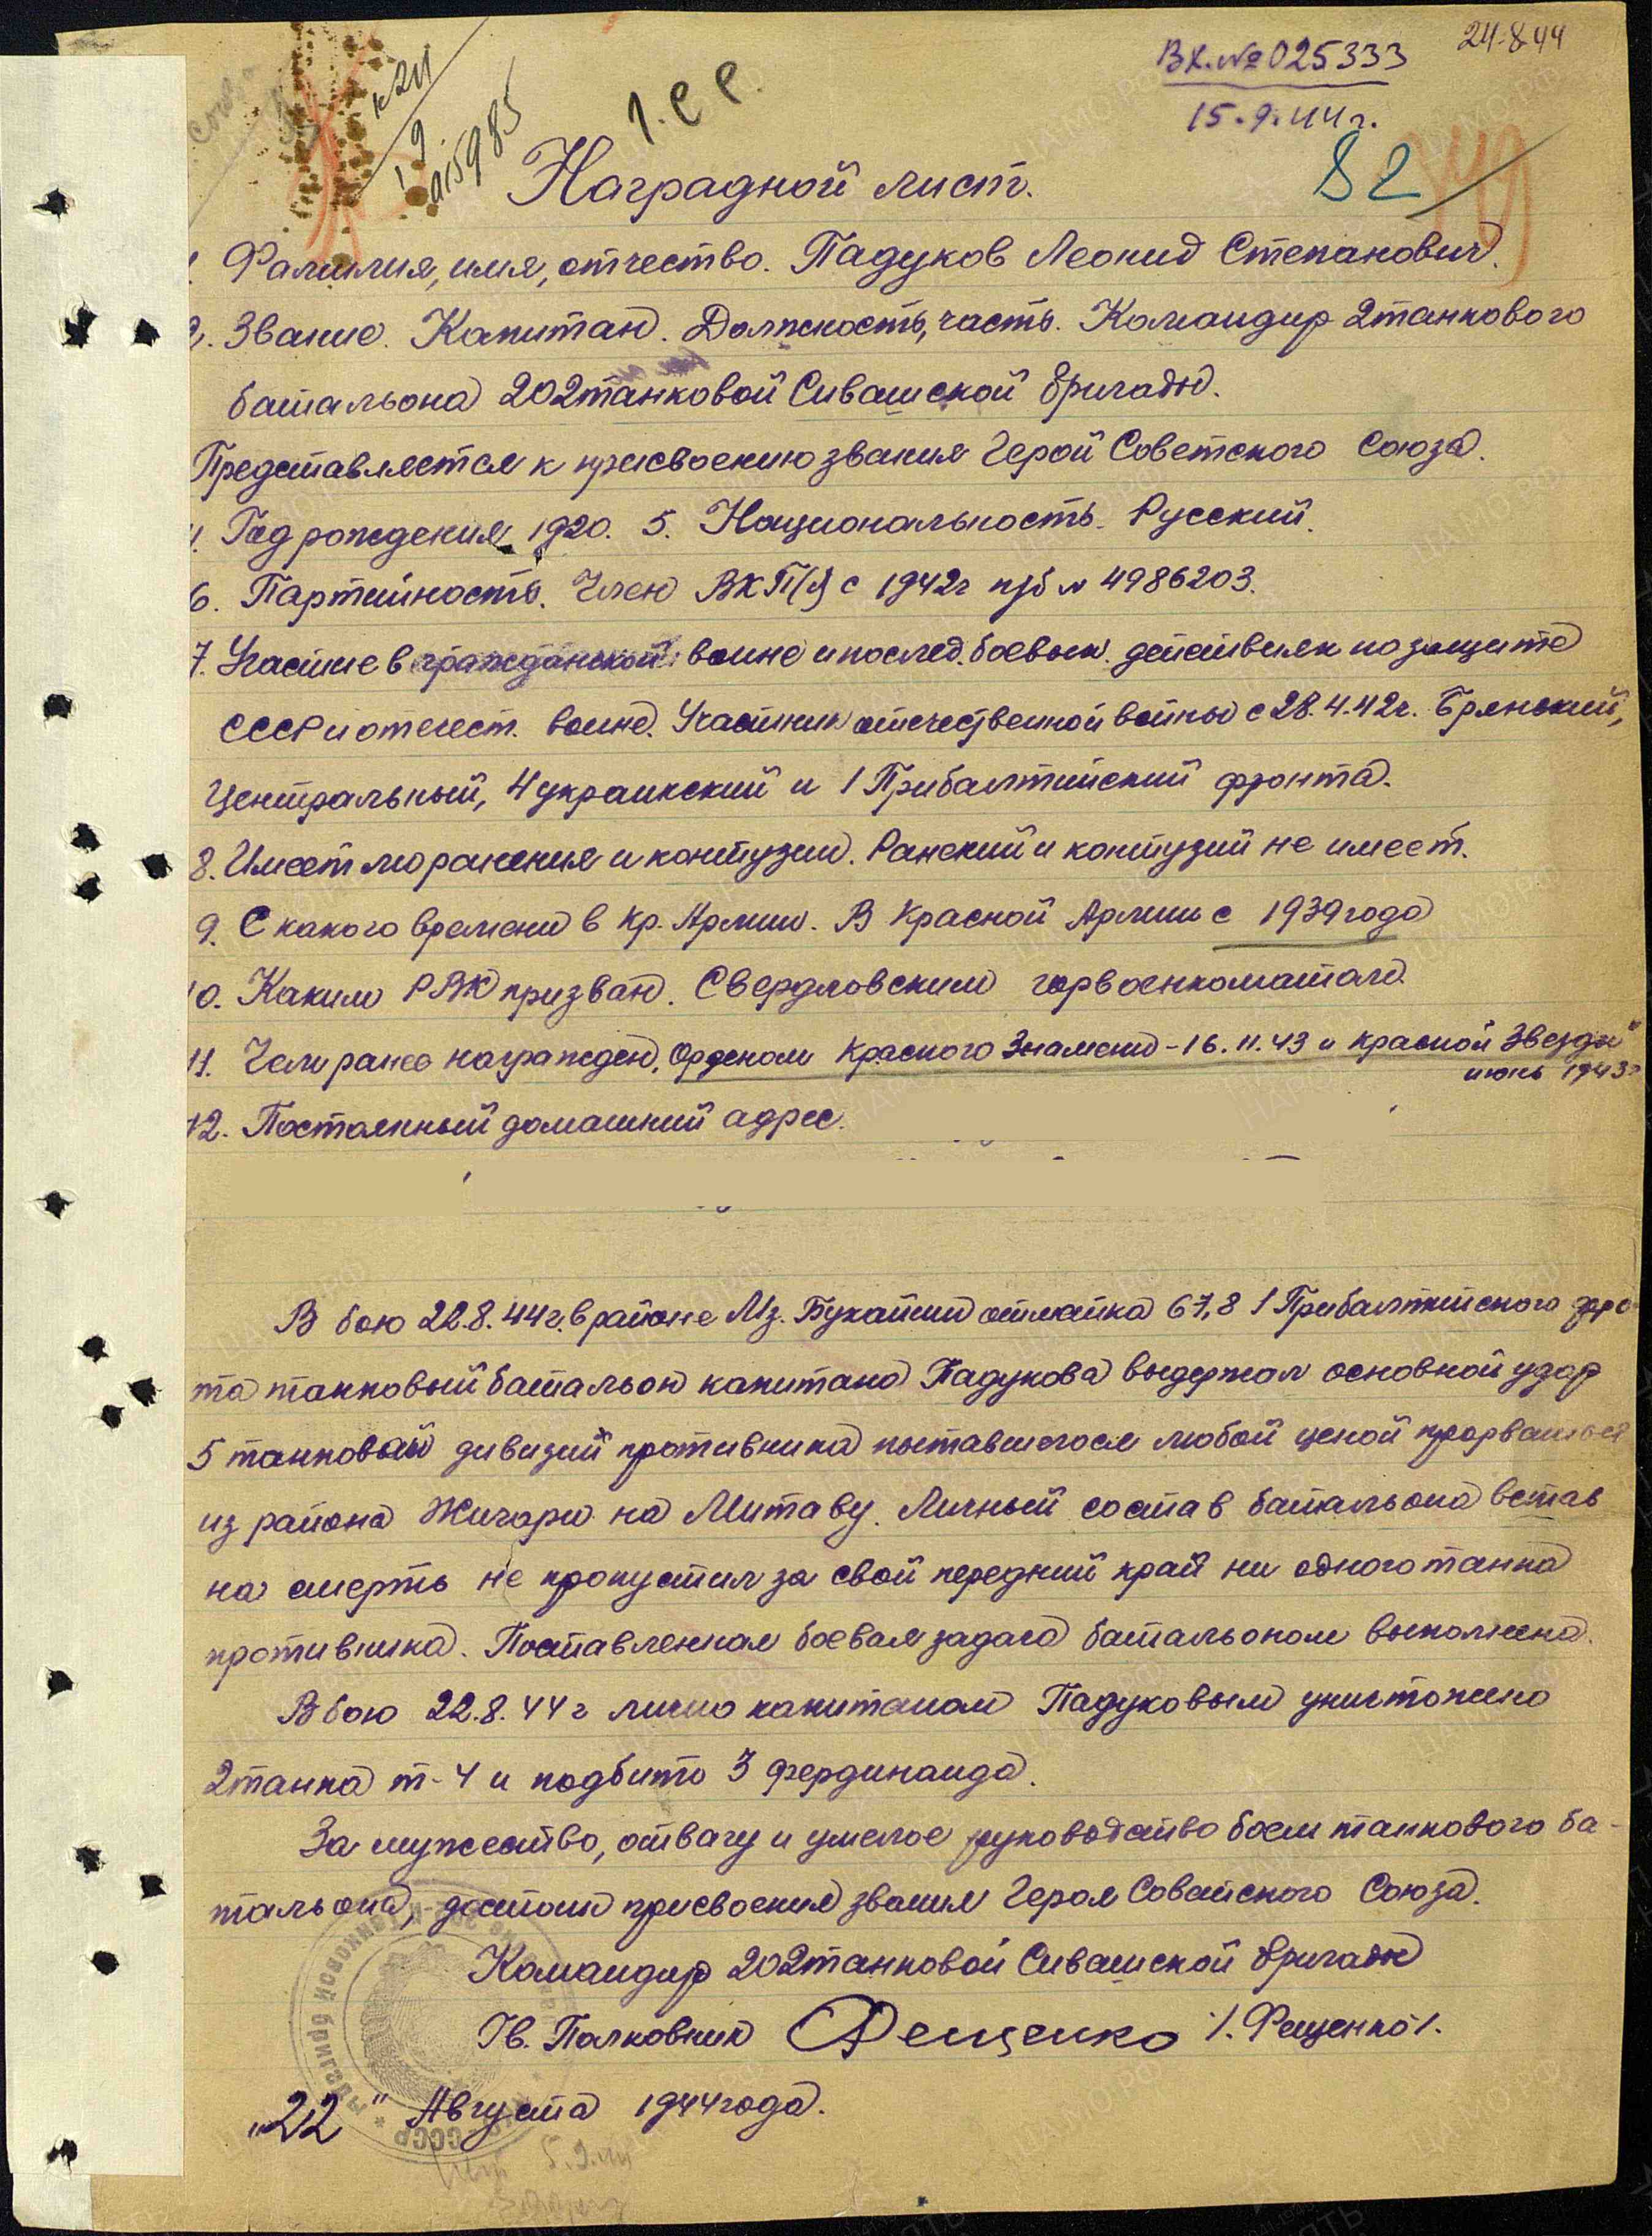 24.8.44
Вх. №025333
15.9.44 г.
1. е е.
к 24
9.
015985
82
Наградной лист.
Фамилия, имя, отчество. Падуков Леонид Степанович.
2. Звание. Капитан. Должность, часть. Командир 2 танкового
батальона 202 танковой Сивашской бригады.
Представляется к присвоению звания Герой Советского Союза.
4. Год рождения 1920. 5. Национальность. Русский.
6. Партийность. Член ВКП(б) с 1942г п/б № 4986203.
7. Участие в гражданской войне и послед. боевых действиях по защите
СССР и отечест. войне. Участник отечественной войны с 28.4.42г. Брянский,
Центральный, 4 украинский и 1 Прибалтийский фронта.
8. Имеет ли ранения и контузии. Ранений и контузий не имеет.
9. С какого времени в Кр. Армии. В Красной Армии с 1939 года
10. Каким РВК призван. Свердловским горвоенкоматом.
11. Чем ранее награжден. Орденом Красного Знамени - 16.11.43 и Красной Звезды
июнь 1943г
12. Постоянный домашний адрес.
В бою 22.8.44г. в районе Мз. Букайши отметка 67,8 1 Прибалтийского фро
та танковый батальон капитана Падукова выдержал основной удар
5 танковой дивизий противника пытавшегося любой ценой прорваться
из района Жигари на Митаву. Личный состав батальона встав
на смерть не пропустил за свой передний край ни одного танка
противника. Поставленная боевая задача батальоном выполнена.
В бою 22.8.44 г лично капитаном Падуковым уничтожено
2 танка т-4 и подбито 3 фердинанда.
За мужество, отвагу и умелое руководство боем танкового ба-
тальона, достоин присвоения звания Героя Советского Союза.
Командир 202 танковой Сивашской бригады
Гв. Полковник Фещенко /. Фещенко /.
„22" Августа 1944 года.